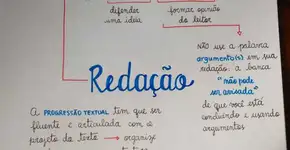 defender
uma ideia
formar opinião
do leitor
Não use a palavra
argumento(s) em sua
redação: a banca
"não pode
ser avisada"
de que você está
conduzindo e usando
argumentos
Redação
A PROGRESSÃO TEXTUAL tem que ser
fluente e articulada com o
projeto da texto → organize